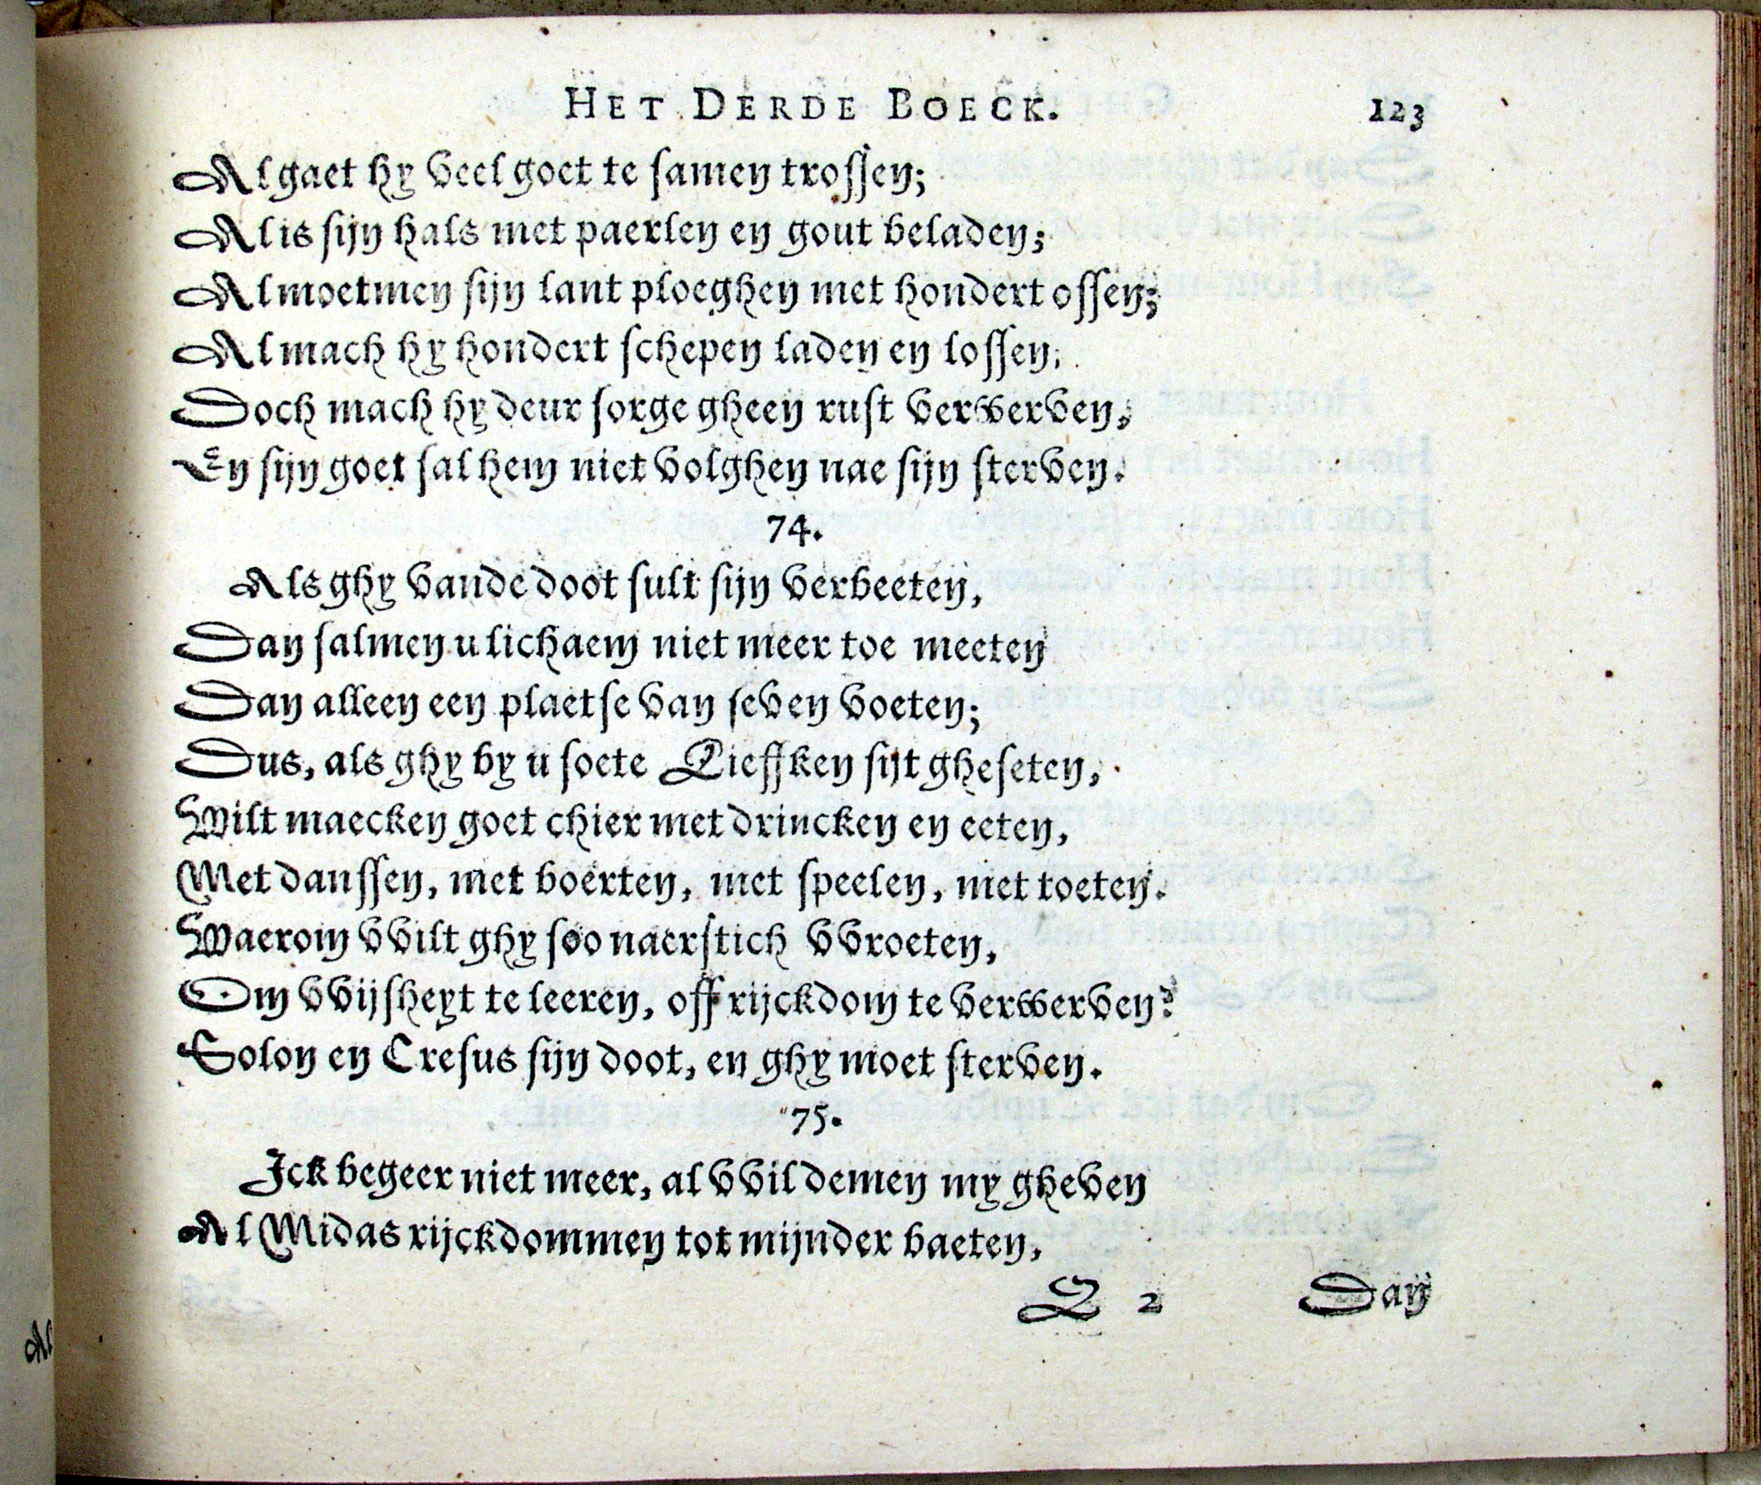 HET DERDE BOECK. 123
Al gaet hy veel goet te samen trossen;
Al is sijn hals met paerlen en gout beladen;
Al moetmen sijn lant ploeghen met hondert ossen;
Al mach hy hondert schepen laden en lossen,
Doch mach hy deur sorge gheen rust verwerven,
En sijn goet sal hem niet volghen nae sijn sterven.
74.
Als ghy vande doot sult sijn verbeeten,
Dan salmen u lichaem niet meer toe meeten
Dan alleen een plaetse van seven voeten;
Dus, als ghy by u soete Lieffken sijt gheseten,
Wilt maecken goet chier met drincken en eeten,
Met danssen, met boerten, met speelen, met toeten.
Waerom vvilt ghy soo naerstich vvroeten,
Om vvijsheyt te leeren, off rijckdom te verwerven?
Solon en Cresus sijn doot, en ghy moet sterven.
75.
Ick begeer niet meer, al vvildemen my gheven
Al Midas rijckdommen tot mijnder baeten,
Q 2 Dan
Al